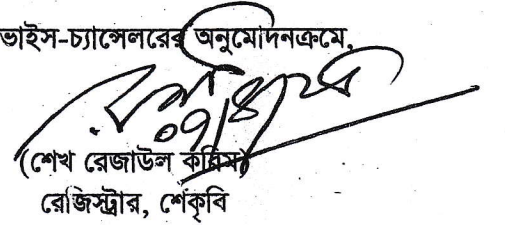 ভাইস-চ্যান্সেলরের অনুমোদনক্রমে,
(শেখ রেজাউল করিম)
রেজিস্ট্রার, শেকৃবি